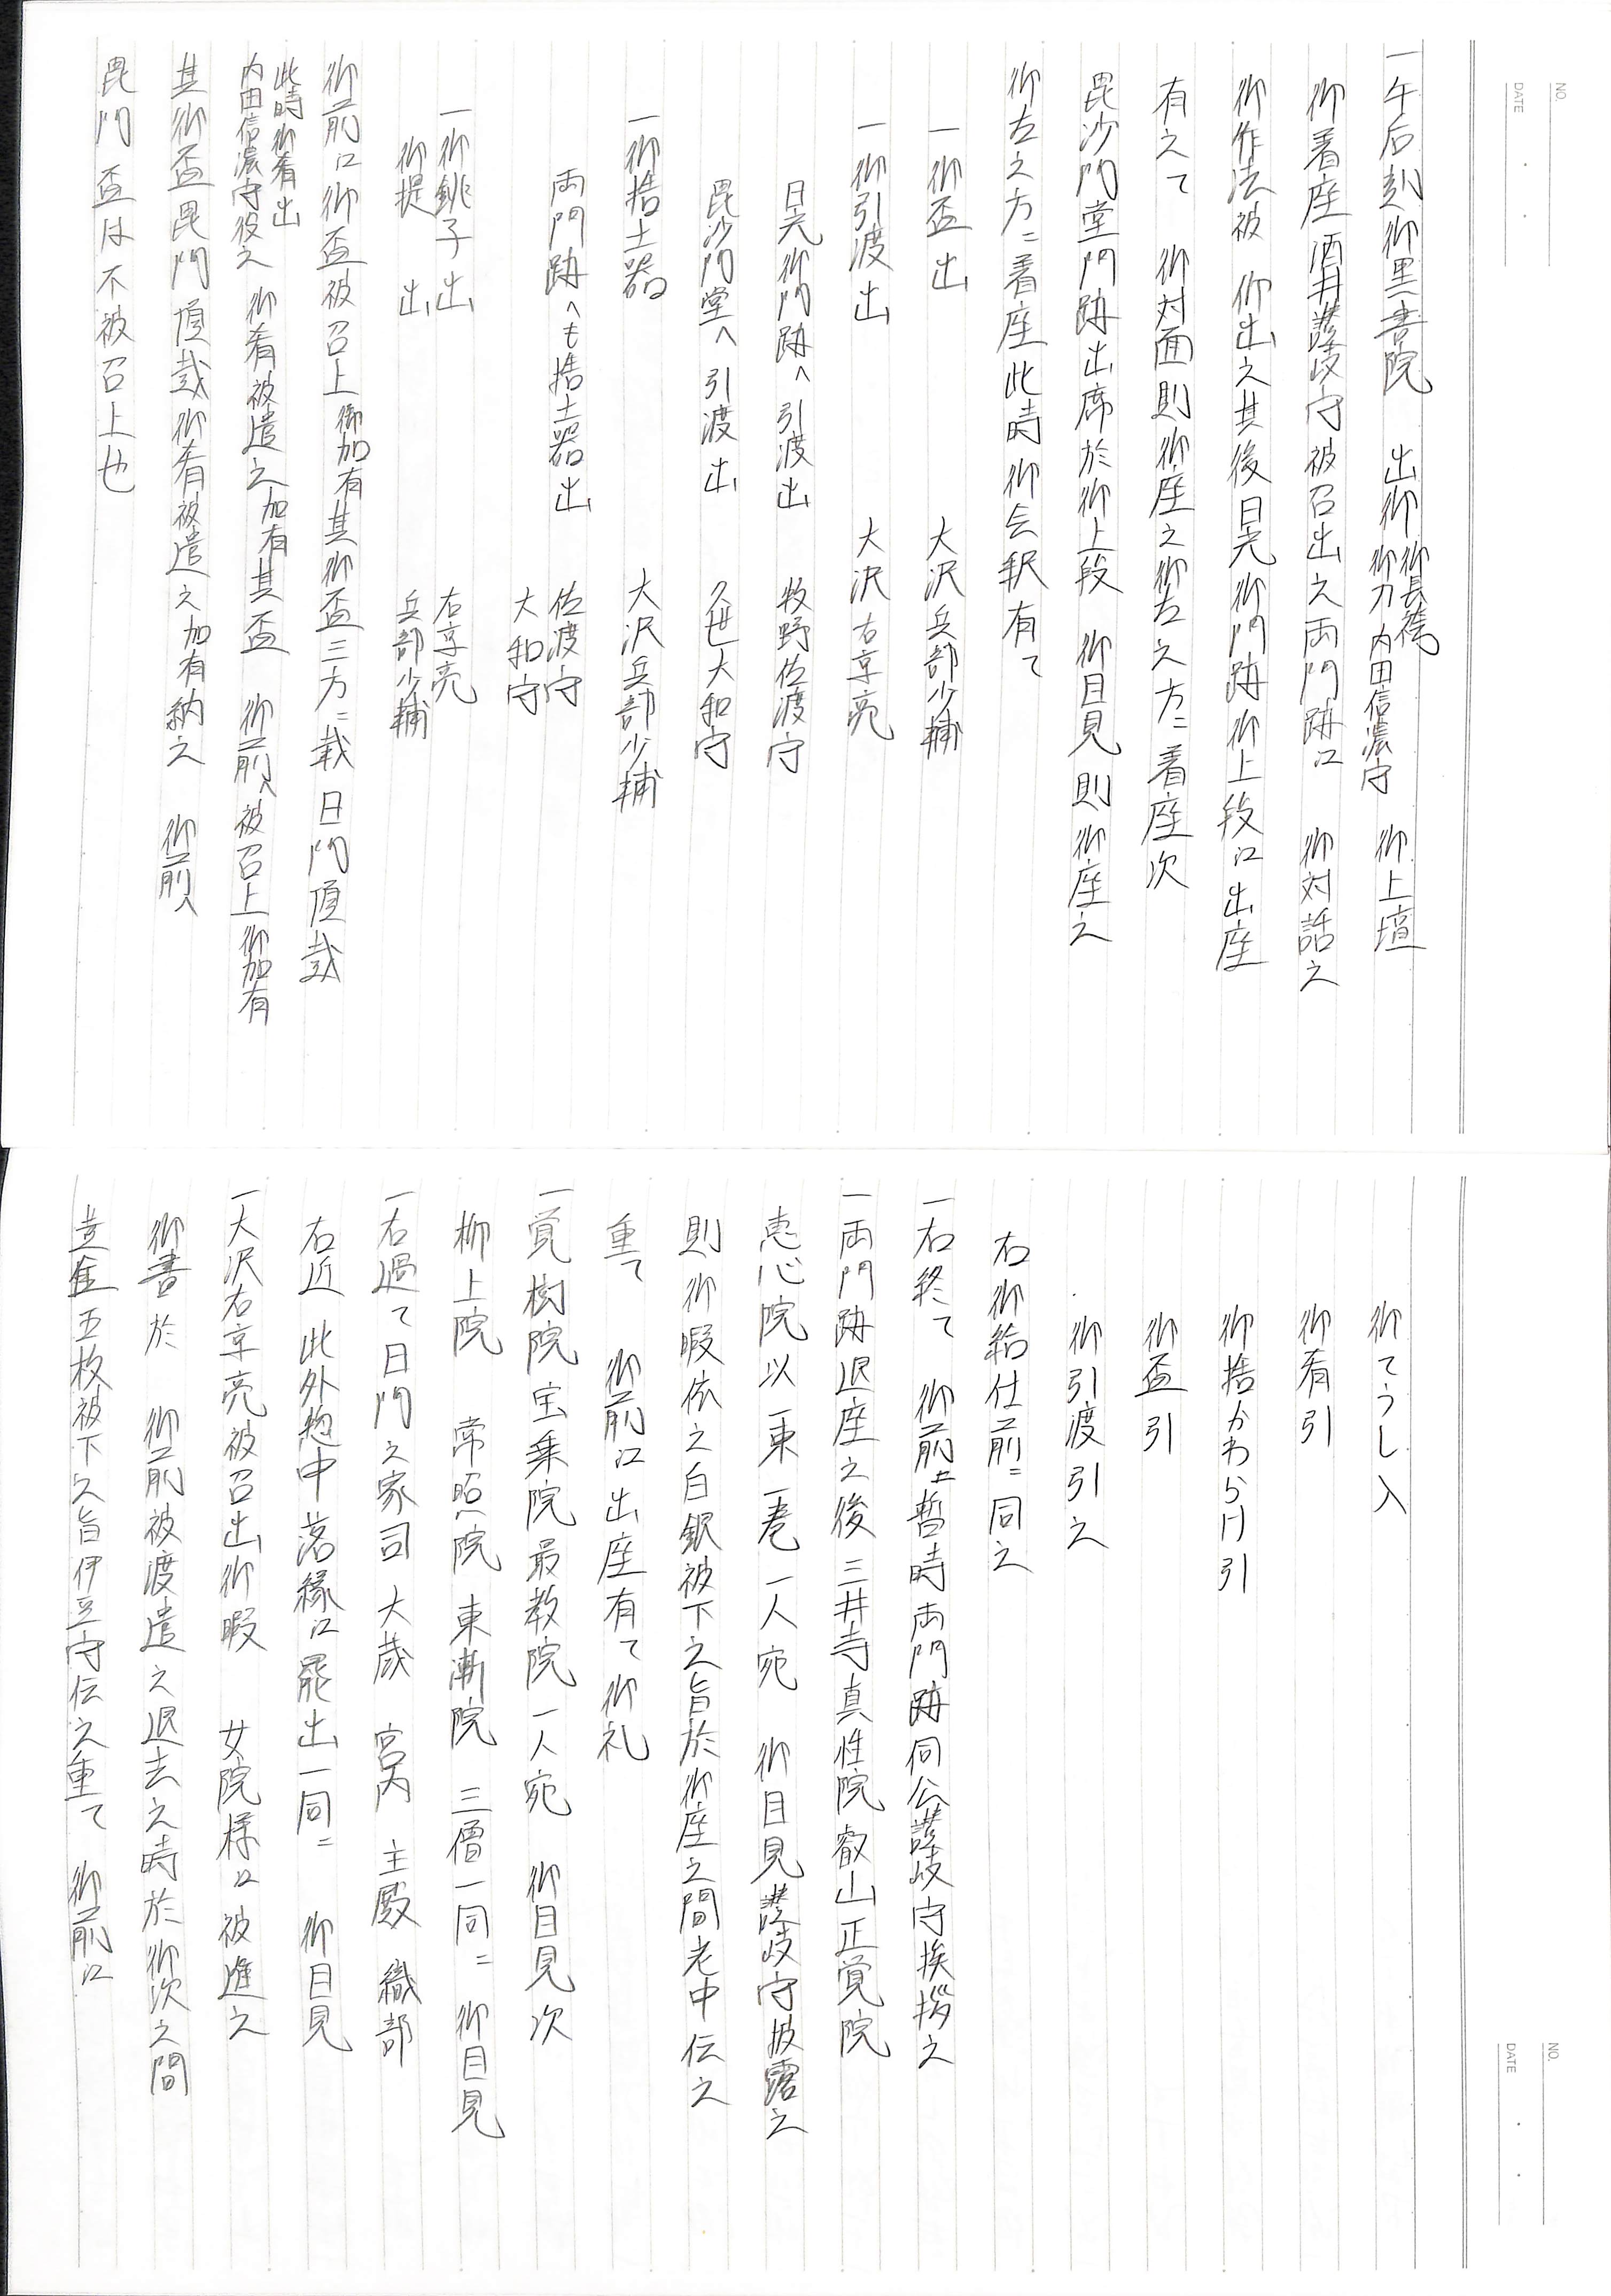 NO.
DATE
一午后刻御黒書院　出御 御長袴 御刀内田信濃守　御上壇
御着座酒井讃岐守被召出之両門跡江　御対話之
御作法被　仰出之其後日光御門跡御上段江出座
有之て　御対面則御座之御右之方ニ着座次
毘沙門堂門跡出席於御上段　御目見則御座之
御左之方ニ着座此時御会釈有て
一御盃出　大沢兵部少輔
一御引渡出　大沢右京亮
日光御門跡へ引渡出　牧野佐渡守
毘沙門堂へ引渡出　久世大和守
一御捨土器　大沢兵部少輔
両門跡へも捨土器出　佐渡守 大和守
一御銚子出　右京亮
御提　出　兵部少輔
御前江御盃被召上御加有其御盃三方ニ載日門頂戴
此時御肴出
内田信濃守役之　御肴被遣之加有其盃　御前へ被召上御加有
其御盃毘門頂戴御肴被遣之加有納之　御前へ
毘門盃は不被召上也
NO.
DATE
御てうし入
御肴引
御捨かわらけ引
御盃引
御引渡引之
右御給仕前ニ同之
一右終て　御前ニ暫時両門跡同公讃岐守挨拶之
一両門跡退座之後三井寺真性院叡山正覚院
恵心院以一束一巻一人宛　御目見讃岐守披露之
則御暇依之白銀被下之旨於御座之間老中伝之
重て　御前江出座有て御礼
一覚樹院宝乗院最教院一人宛　御目見次
柳上院　常照院　東漸院　三僧一同ニ御目見
一右過て日門之家司大蔵　宮内　主殿　織部
右近　此外惣中落縁江罷出一同ニ　御目見
一大沢右京亮被召出御暇　女院様江被進之
御書於　御前被渡遣之退去之時於御次之間
黄金五枚被下之旨伊豆守伝之重て　御前江